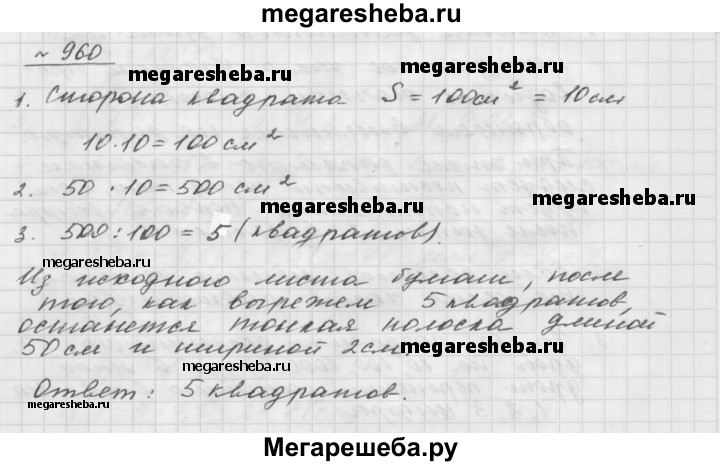 megaresheba.ru
№ 960
megaresheba.ru
megaresheba.ru
1. Сторона квадрата S = 100 см² = 10 см
10 · 10 = 100 см²
2. 50 · 10 = 500 см²
megaresheba.ru
megaresheba.ru
3. 500 : 100 = 5 (квадратов).
megaresheba.ru
Из исходного листа бумаги, после
того, как вырежем 5 квадратов,
megaresheba.ru
останется тонкая полоска длиной
50 см и шириной 2 см.
megaresheba.ru
Ответ: 5 квадратов.
megaresheba.ru
megaresheba.ru
Мегарешеба.ру